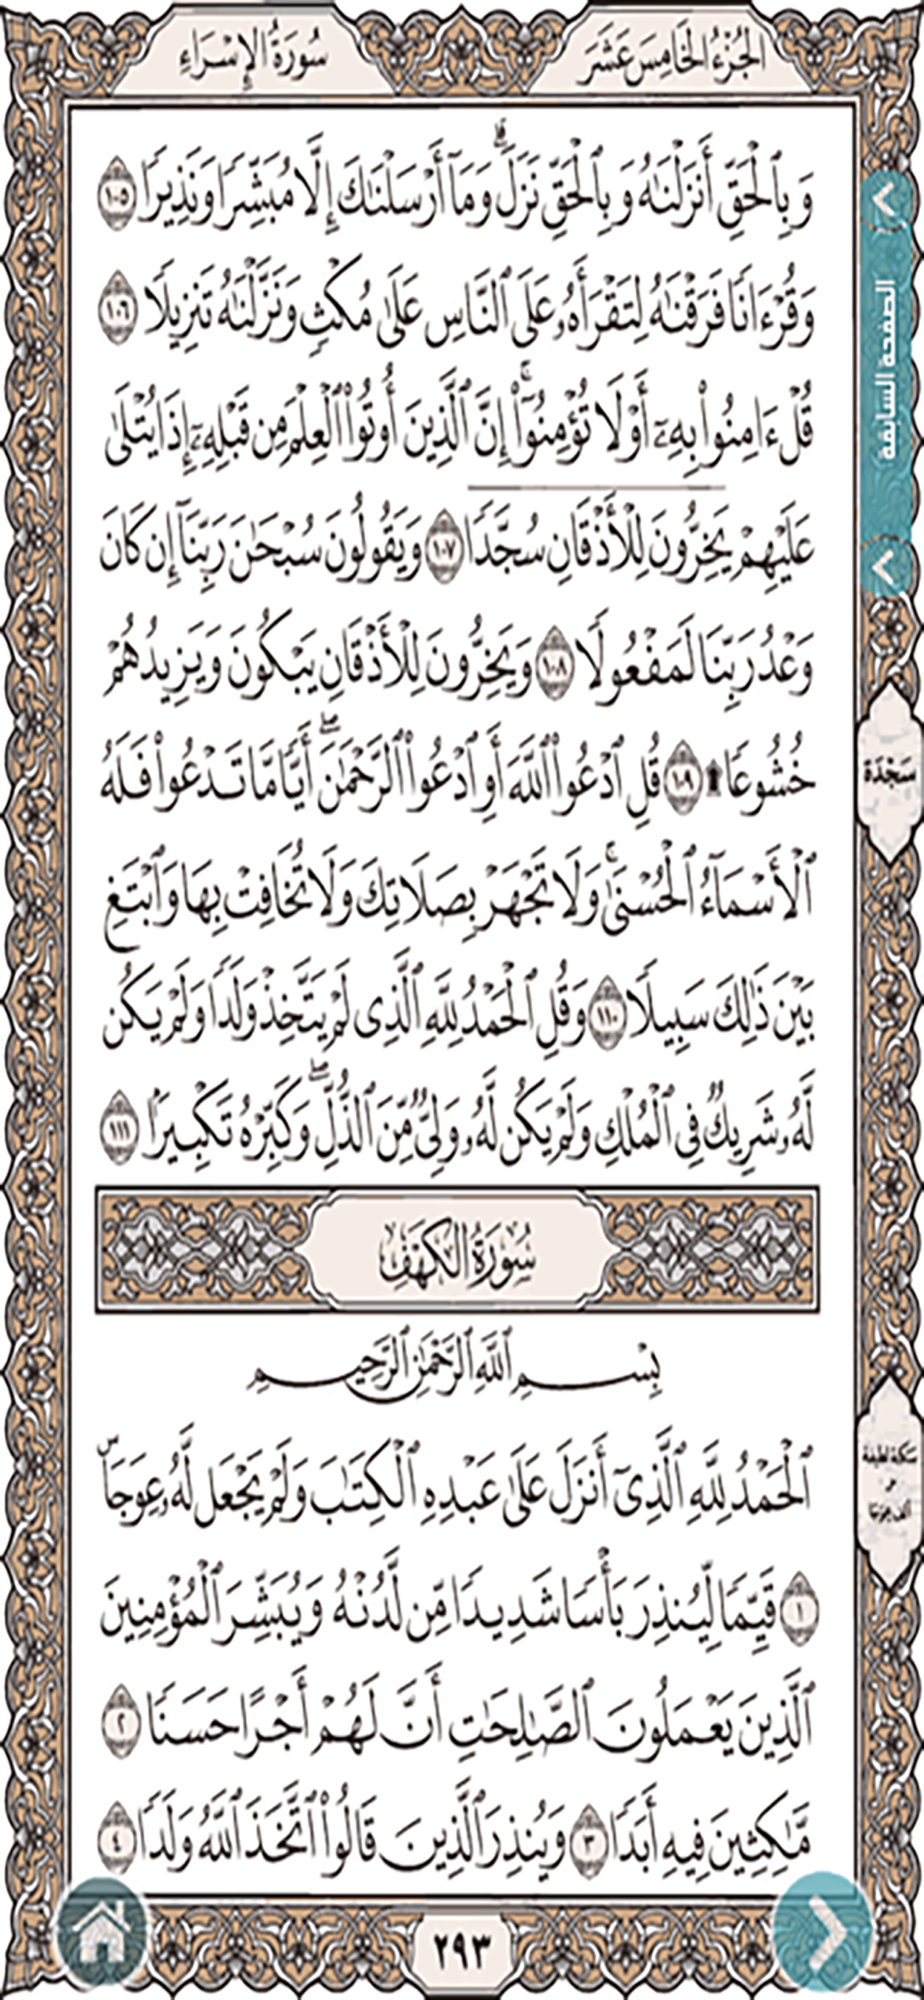 الجُزْءُ الخَامِسَ عَشَرَ
سُورَةُ الإِسْرَاءِ
وَبِٱلْحَقِّ أَنزَلْنَٰهُ وَبِٱلْحَقِّ نَزَلَ ۗ وَمَآ أَرْسَلْنَٰكَ إِلَّا مُبَشِّرًا وَنَذِيرًا ١٠٥
وَقُرْءَانًا فَرَقْنَٰهُ لِتَقْرَأَهُۥ عَلَى ٱلنَّاسِ عَلَىٰ مُكْثٍ وَنَزَّلْنَٰهُ تَنزِيلًا ١٠٦
قُلْ ءَامِنُوا۟ بِهِۦٓ أَوْ لَا تُؤْمِنُوٓا۟ ۚ إِنَّ ٱلَّذِينَ أُوتُوا۟ ٱلْعِلْمَ مِن قَبْلِهِۦٓ إِذَا يُتْلَىٰ
عَلَيْهِمْ يَخِرُّونَ لِلْأَذْقَانِ سُجَّدًا ١٠٧ وَيَقُولُونَ سُبْحَٰنَ رَبِّنَآ إِن كَانَ
وَعْدُ رَبِّنَا لَمَفْعُولًا ١٠٨ وَيَخِرُّونَ لِلْأَذْقَانِ يَبْكُونَ وَيَزِيدُهُمْ
خُشُوعًا ۩ ١٠٩ قُلِ ٱدْعُوا۟ ٱللَّهَ أَوِ ٱدْعُوا۟ ٱلرَّحْمَٰنَ ۖ أَيًّا مَّا تَدْعُوا۟ فَلَهُ
ٱلْأَسْمَآءُ ٱلْحُسْنَىٰ ۚ وَلَا تَجْهَرْ بِصَلَاتِكَ وَلَا تُخَافِتْ بِهَا وَٱبْتَغِ
بَيْنَ ذَٰلِكَ سَبِيلًا ١١٠ وَقُلِ ٱلْحَمْدُ لِلَّهِ ٱلَّذِى لَمْ يَتَّخِذْ وَلَدًا وَلَمْ يَكُن
لَّهُۥ شَرِيكٌ فِى ٱلْمُلْكِ وَلَمْ يَكُن لَّهُۥ وَلِىٌّ مِّنَ ٱلذُّلِّ ۖ وَكَبِّرْهُ تَكْبِيرًۢا ١١١
سُورَةُ الكَهْفِ
بِسْمِ ٱللَّهِ ٱلرَّحْمَٰنِ ٱلرَّحِيمِ
ٱلْحَمْدُ لِلَّهِ ٱلَّذِىٓ أَنزَلَ عَلَىٰ عَبْدِهِ ٱلْكِتَٰبَ وَلَمْ يَجْعَل لَّهُۥ عِوَجَا ۜ
١ قَيِّمًا لِّيُنذِرَ بَأْسًا شَدِيدًا مِّن لَّدُنْهُ وَيُبَشِّرَ ٱلْمُؤْمِنِينَ
ٱلَّذِينَ يَعْمَلُونَ ٱلصَّٰلِحَٰتِ أَنَّ لَهُمْ أَجْرًا حَسَنًا ٢
مَّٰكِثِينَ فِيهِ أَبَدًا ٣ وَيُنذِرَ ٱلَّذِينَ قَالُوا۟ ٱتَّخَذَ ٱللَّهُ وَلَدًا ٤
٢٩٣
الصفحة السابقة
سَجْدَة
سكتة لطيفة
على
ألف عوجا